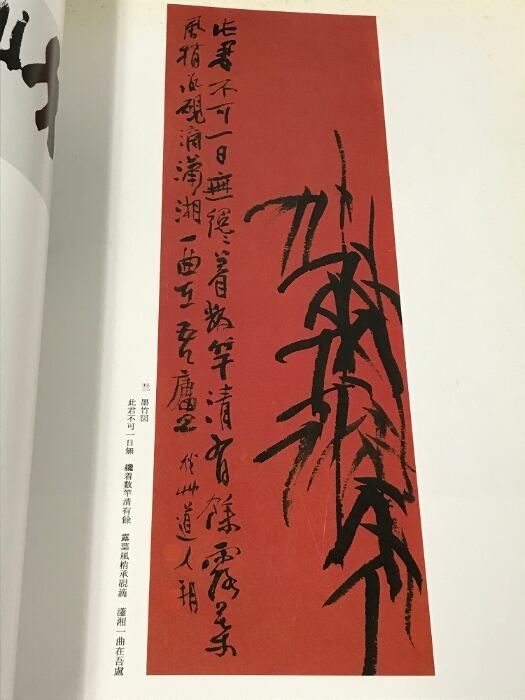 此君不可一日無纔着数竿清有餘露葉
風梢承硯滴瀟湘一曲在吾廬 秋艸道人朔
墨竹図
此君不可一日無　纔着数竿清有餘　露葉風梢承硯滴　瀟湘一曲在吾廬